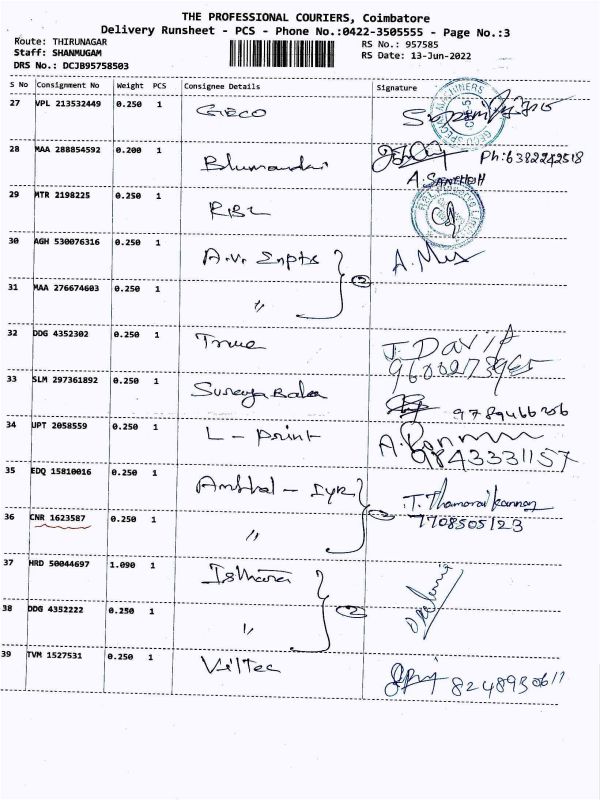 THE PROFESSIONAL COURIERS, Coimbatore
Delivery Runsheet - PCS - Phone No.:0422-3505555 - Page No.:3
Route: THIRUNAGAR RS No.: 957585
Staff: SHANMUGAM RS Date: 13-Jun-2022
DRS No.: DCJB95758503
S No Consignment No Weight PCS Consignee Details Signature
27 VPL 213532449 0.250 1 GECO
28 MAA 288854592 0.200 1 Ph:6382242518
A. SANTHOSH
29 MTR 2198225 0.250 1 RBL
30 AGH 530076316 0.250 1 A.V. Enpts 2
31 MAA 276674603 0.250 1 "
32 DDG 4352302 0.250 1 True J. David
9600273965
33 SLM 297361892 0.250 1 Sureya Bala 9789466206
34 UPT 2058559 0.250 1 L - print
9843331157
35 EDQ 15810016 0.250 1 T. Thamaraikannan
36 CNR 1623587 0.250 1 " 2 7708505123
37 HRD 50044697 1.090 1 Isthara
38 DDG 4352222 0.250 1 " 2
39 TVM 1527531 0.250 1 Viltec 8248930611